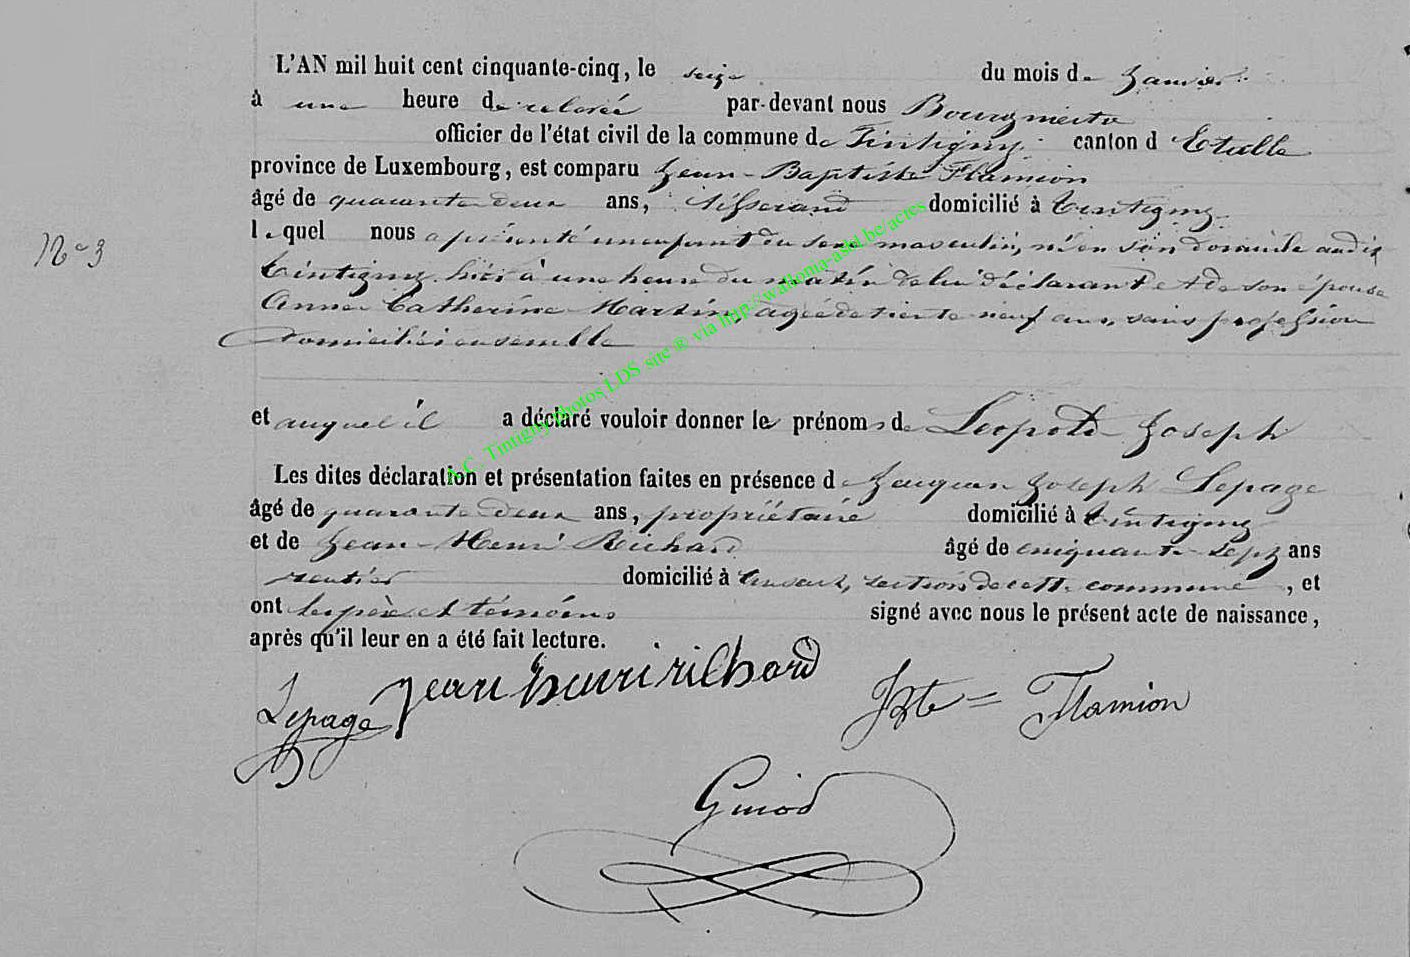 L'AN mil huit cent cinquante-cinq, le seize du mois de Janvier
à une heure de relevée par-devant nous Bourgmestre
officier de l'état civil de la commune de Tintigny canton d'Etalle
province de Luxembourg, est comparu Jean-Baptiste Flamion
âgé de quarante deux ans, tisserand domicilié à Tintigny
N° 3
lequel nous a présenté un enfant du sexe masculin, né en son domicile audit
Tintigny hier à une heure du matin de lui déclarant et de son épouse
Anne Catherine Martin, agée de trente neuf ans, sans profession
domiciliés ensemble
et auquel il a déclaré vouloir donner les prénoms de Léopold Joseph
Les dites déclaration et présentation faites en présence de Jacques Joseph Lepage
âgé de quarante deux ans, propriétaire domicilié à Tintigny
et de Jean-Henri Richard âgé de cinquante-sept ans
rentier domicilié à section de cette commune, et
ont les père et témoins signé avec nous le présent acte de naissance,
après qu'il leur en a été fait lecture.
Lepage jean henri richard JBte = Flamion
Guiod
A.C. Tintigny photos LDS site ® via http://wallonia-asbl.be/actes